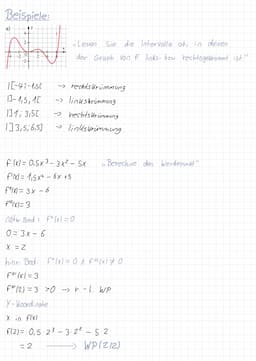 Beispiele:
a)
"Lesen Sie die Intervalle ab, in denen
der Graph von f links- bzw. rechtsgekrümmt ist"
I[-4;-1,5[ → rechtskrümmung
]-1,5; 1[ → linkskrümmung
I]1; 3,5[ → rechtskrümmung
I]3,5; 6,5] → linkskrümmung
f(x) = 0,5x³ - 3x² - 5x "Berechne den Wendepunkt"
f'(x) = 1,5x² - 6x + 5
f''(x) = 3x - 6
f'''(x) = 3
notw. Bed.: f''(x) = 0
0 = 3x - 6
x = 2
hinr. Bed. f''(x) = 0 ∧ f'''(x) ≠ 0
f'''(x) = 3
f'''(2) = 3 > 0 → r-l WP
Y-Koordinate
x in f(x)
f(2) = 0,5 · 2³ - 3 · 2² - 5 · 2
= 2 → WP(2|2)